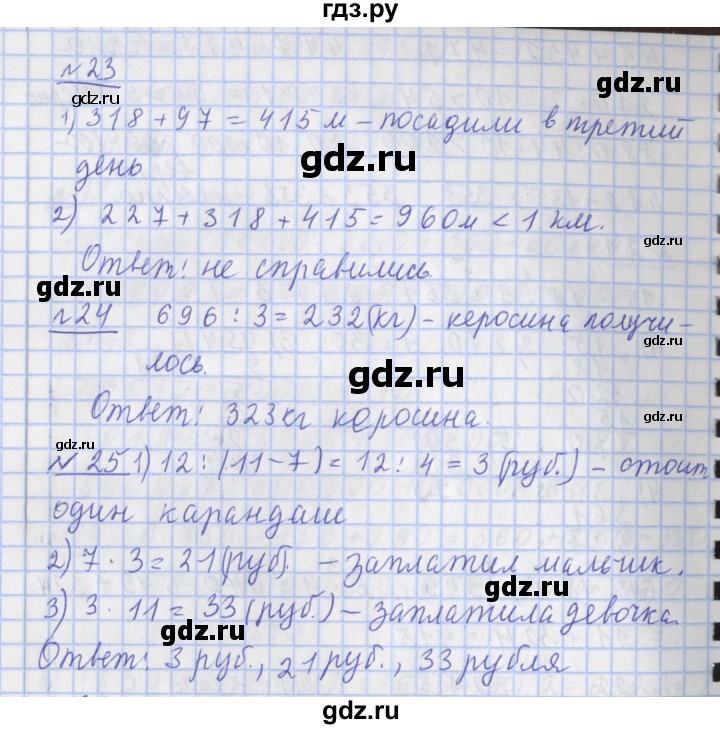 гдз.ру
№23
gdz.ru
gdz.ru
1) 318 + 97 = 415 м – посадили в третий
gdz.ru
день
gdz.ru
2) 227 + 318 + 415 = 960 м < 1 км.
gdz.ru
Ответ: не справились.
gdz.ru
№24 696 : 3 = 232 (кг) – керосина получи-
gdz.ru
лось.
gdz.ru
Ответ: 323 кг керосина.
gdz.ru
gdz.ru
№25 1) 12 : (11 – 7) = 12 : 4 = 3 (руб.) – стоит
gdz.ru
один карандаш
2) 7 · 3 = 21 (руб). – заплатил мальчик.
gdz.ru
3) 3 · 11 = 33 (руб.) – заплатила девочка.
gdz.ru
Ответ: 3 руб., 21 руб., 33 рубля
gdz.ru
gdz.ru